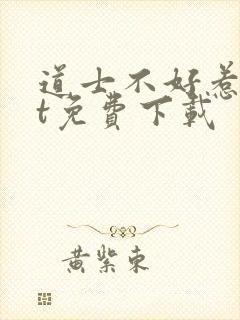 道士不好惹
t免费下載
黄紫東